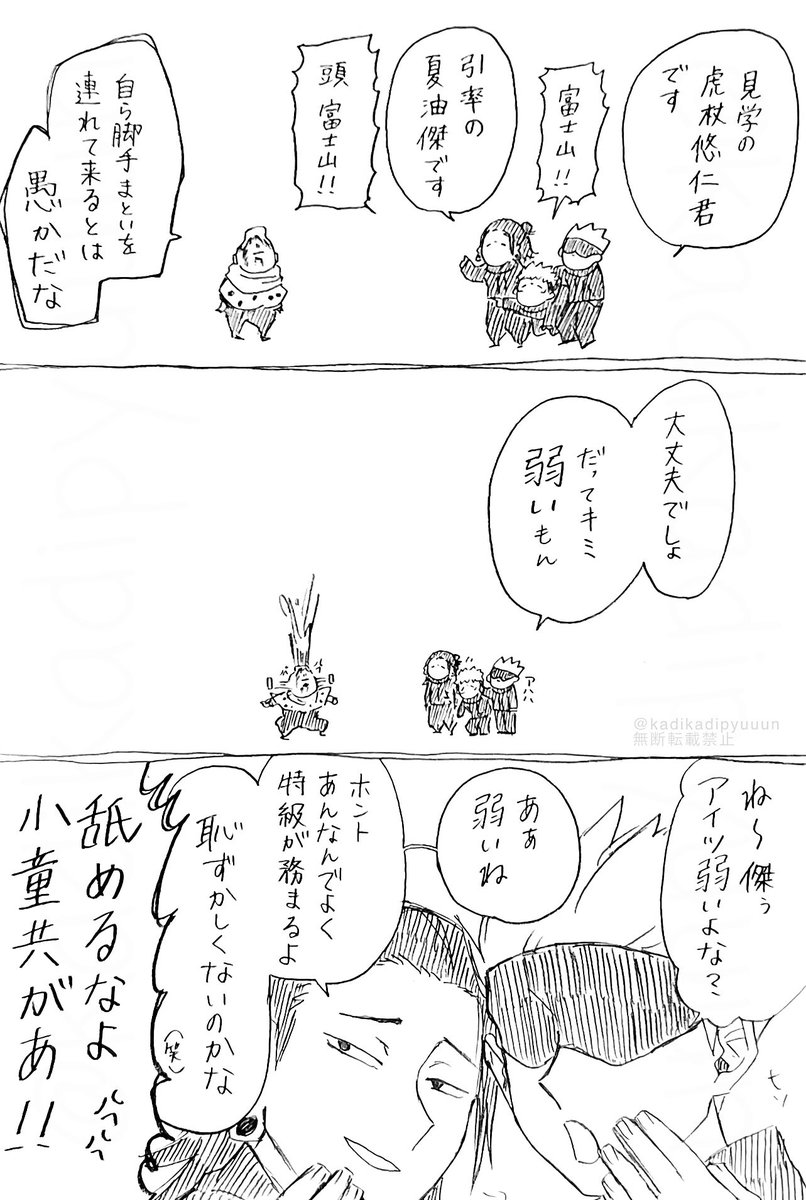 見学の
虎杖悠仁君
です
富士山!!
引率の
夏油傑です
頭 富士山!!
自ら脚手まといを
連れて来るとは
愚かだな
大丈夫でしょ
だってキミ
弱いもん
アハハ
@kadikadipyuuun
無断転載禁止
ね〜傑ぅ
アイツ弱いよな?
ヒソ
あぁ
弱いね
ホント
あんなんでよく
特級が務まるよ
恥ずかしくないのかな
(笑)
舐めるなよ
小童共があ!!